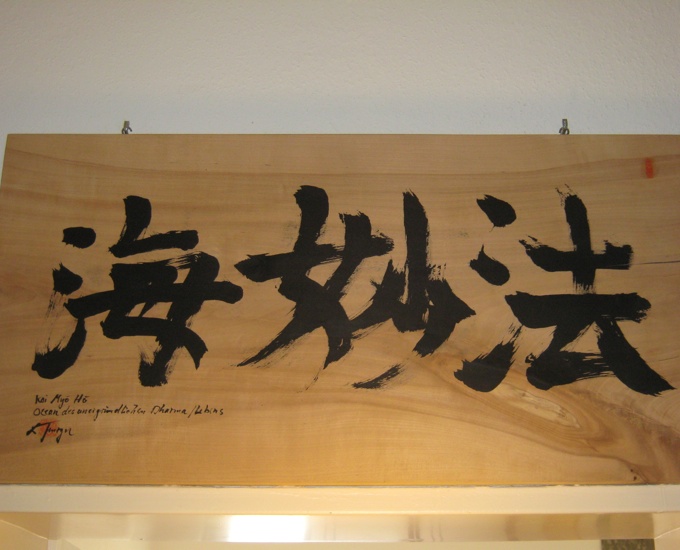 海妙法
Kai Myō Hō
Ozean des unergründlichen Dharma/Lebens